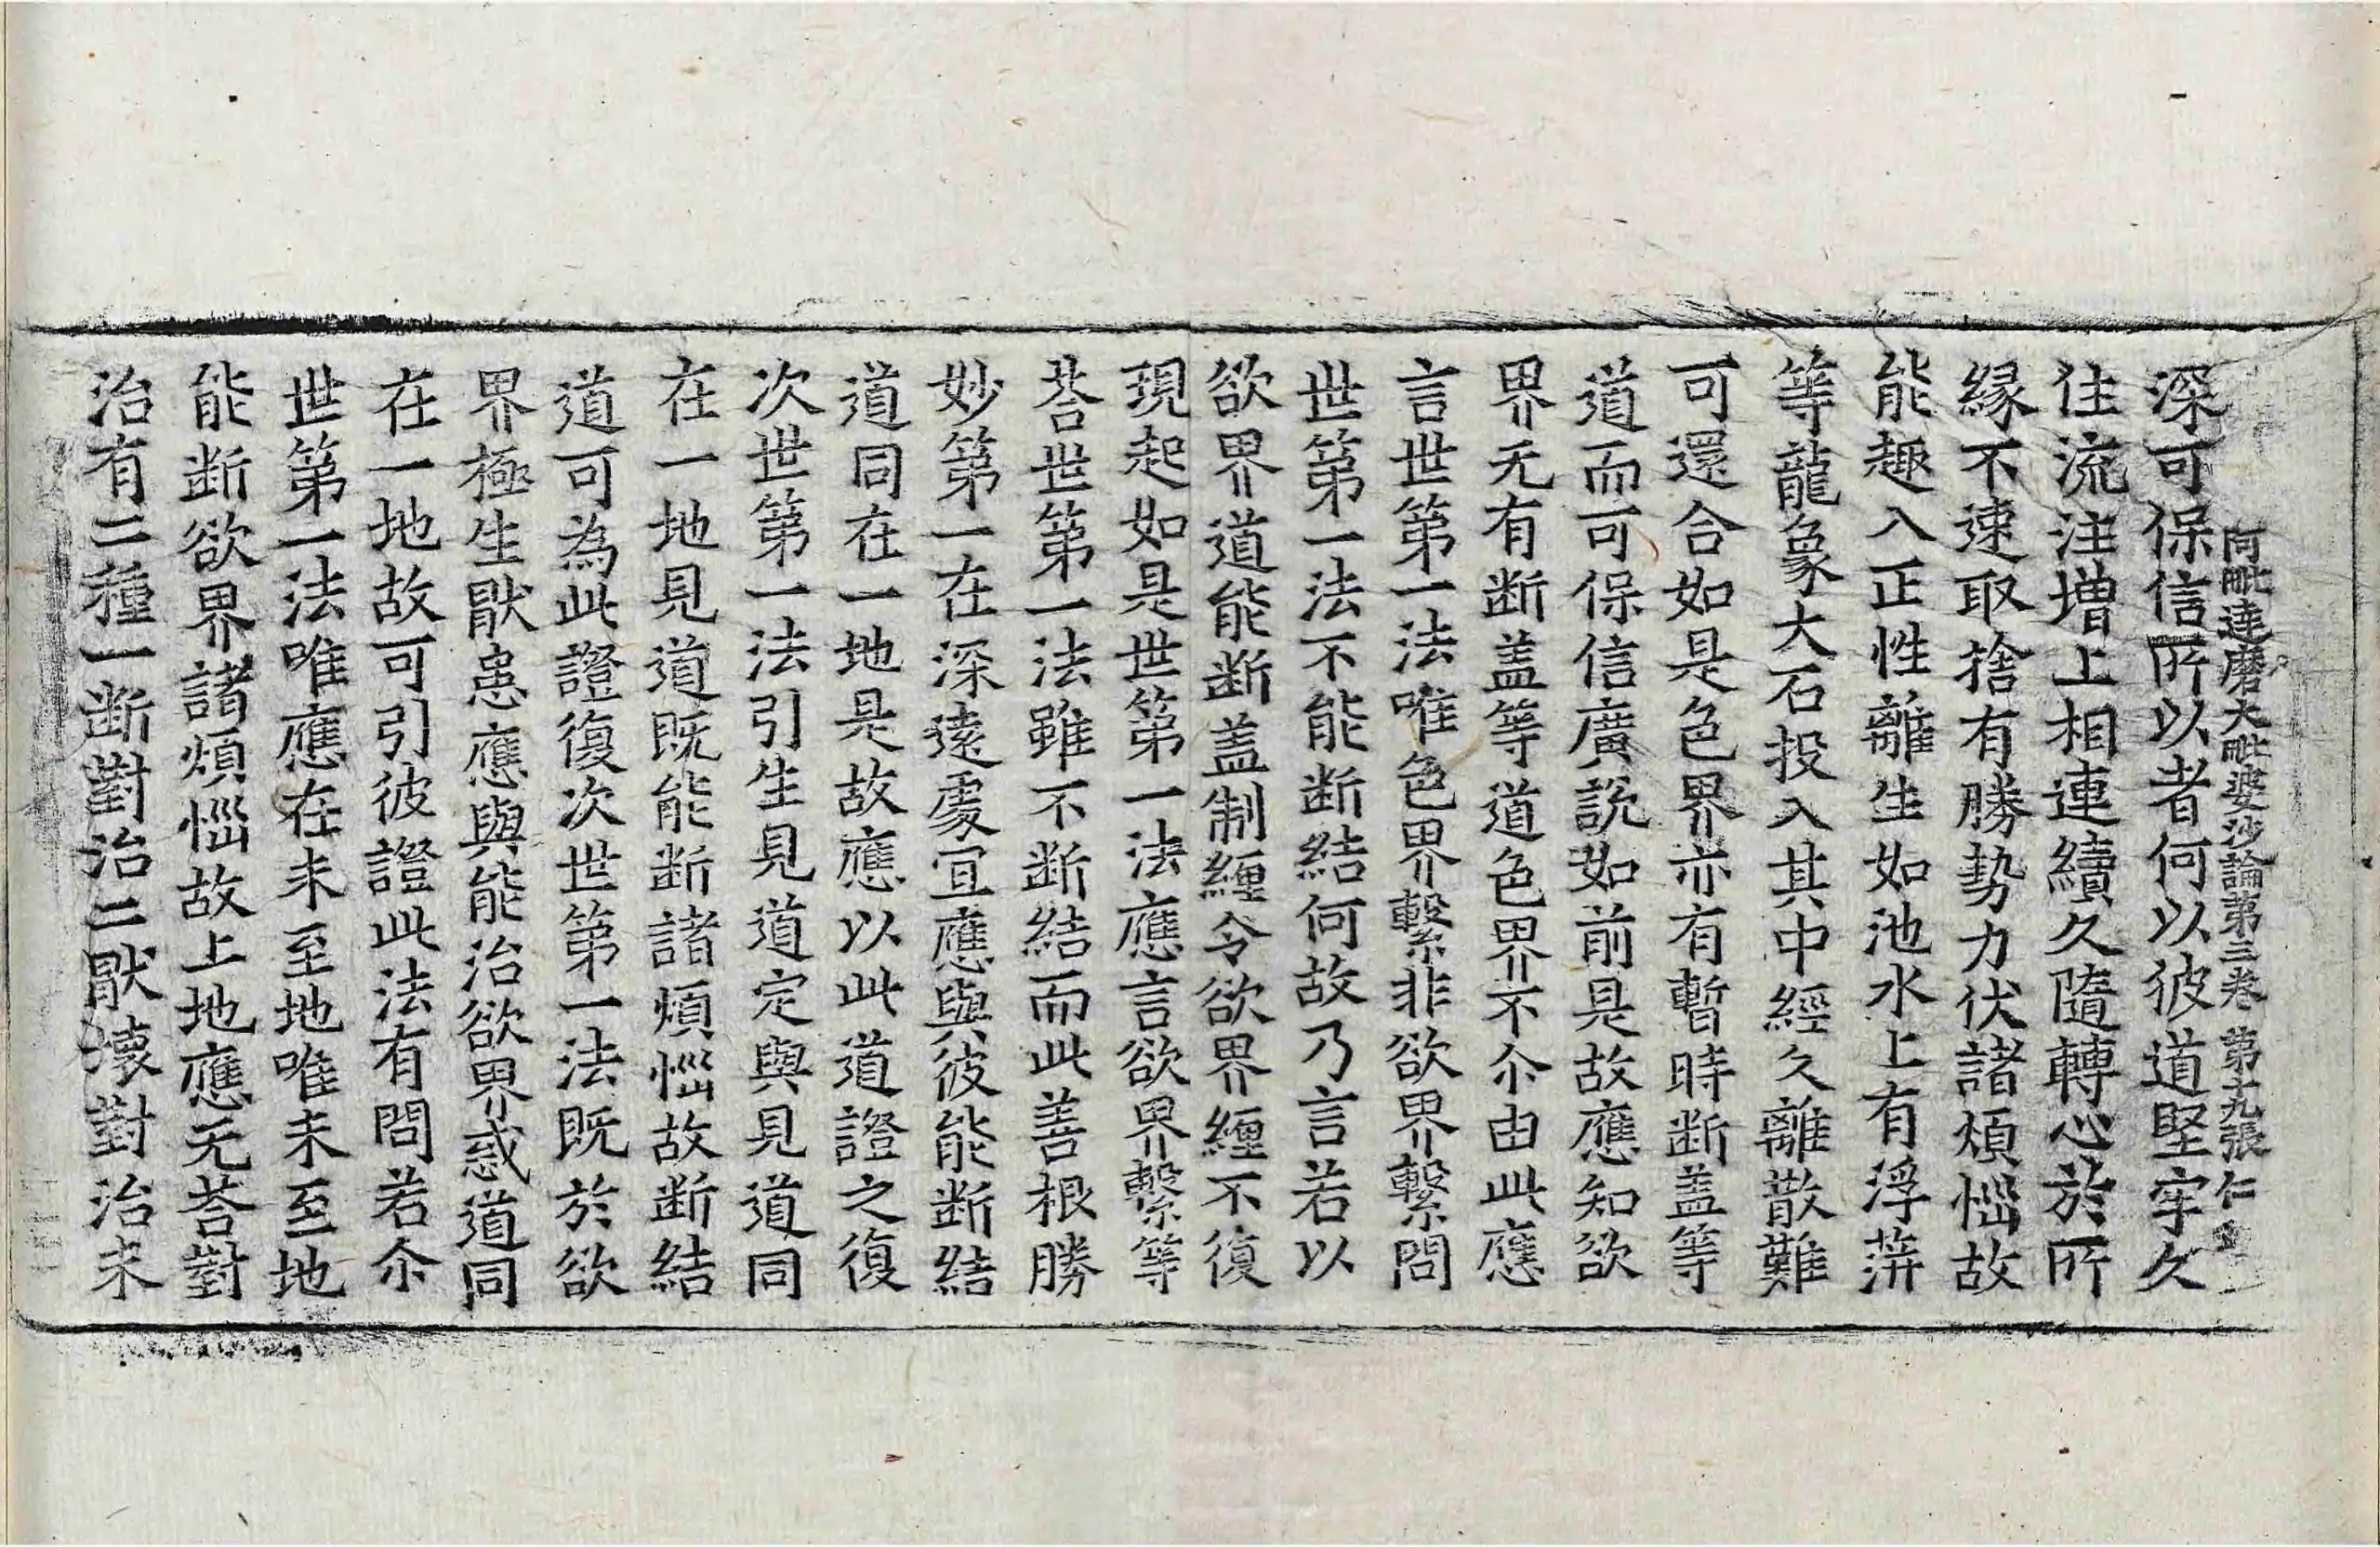 阿毗達磨大毗婆沙論第三卷 第十九張 仁
深可保信所以者何以彼道堅牢久
住流注增上相連續久隨轉心於所
緣不速取捨有勝勢力伏諸煩惱故
能趣入正性離生如池水上有浮萍
等龍象大石投入其中經久離散難
可還合如是色界亦有暫時断盖等
道而可保信廣說如前是故應知欲
界无有断盖等道色界不尒由此應
言世第一法唯色界繫非欲界繫問
世第一法不能断結何故乃言若以
欲界道能断盖制纏令欲界纏不復
現起如是世第一法應言欲界繫等
荅世第一法雖不断結而此善根勝
妙第一在深遠處宜應與彼能断結
道同在一地是故應以此道證之復
次世第一法引生見道定與見道同
在一地見道既能断諸煩惱故断結
道可為此證復次世第一法既於欲
界極生猒患應與能治欲界惑道同
在一地故可引彼證此法有問若尒
世第一法唯應在未至地唯未至地
能断欲界諸煩惱故上地應无荅對
治有二種一断對治二猒壞對治未